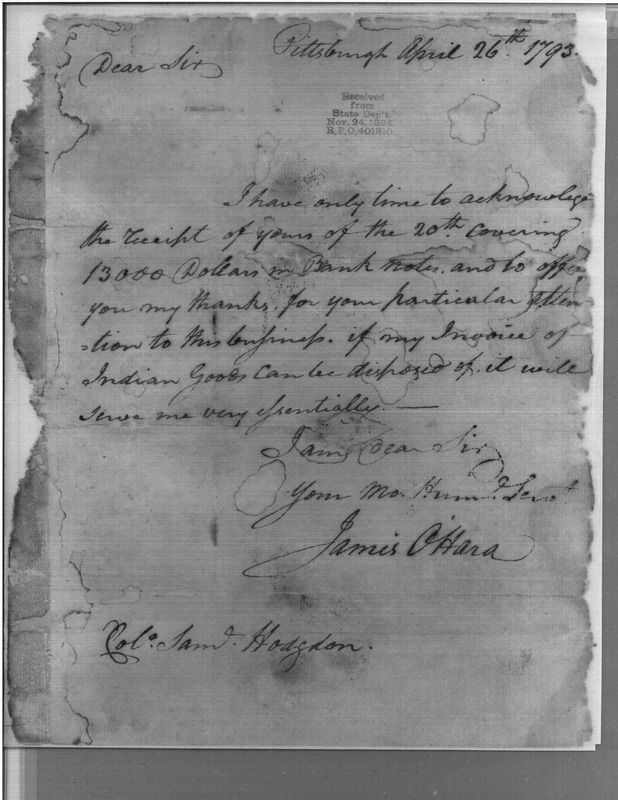 Pittsburgh April 26th. 1793.
Dear Sir
Received
from
State Dep't.
Nov. 24, 1894
R.P.O. 401810
I have only time to acknowlege
the receipt of yours of the 20th. covering
13000 Dollars in Bank notes. and to offer
you my thanks. for your particular atten
=tion to this business. if my Invoice of
Indian Goods can be disposed of. it will
serve me very essentially. —
I am Dear Sir
Your Mo. Humt. Servt
James O'Hara
Colo. Saml. Hodgdon.